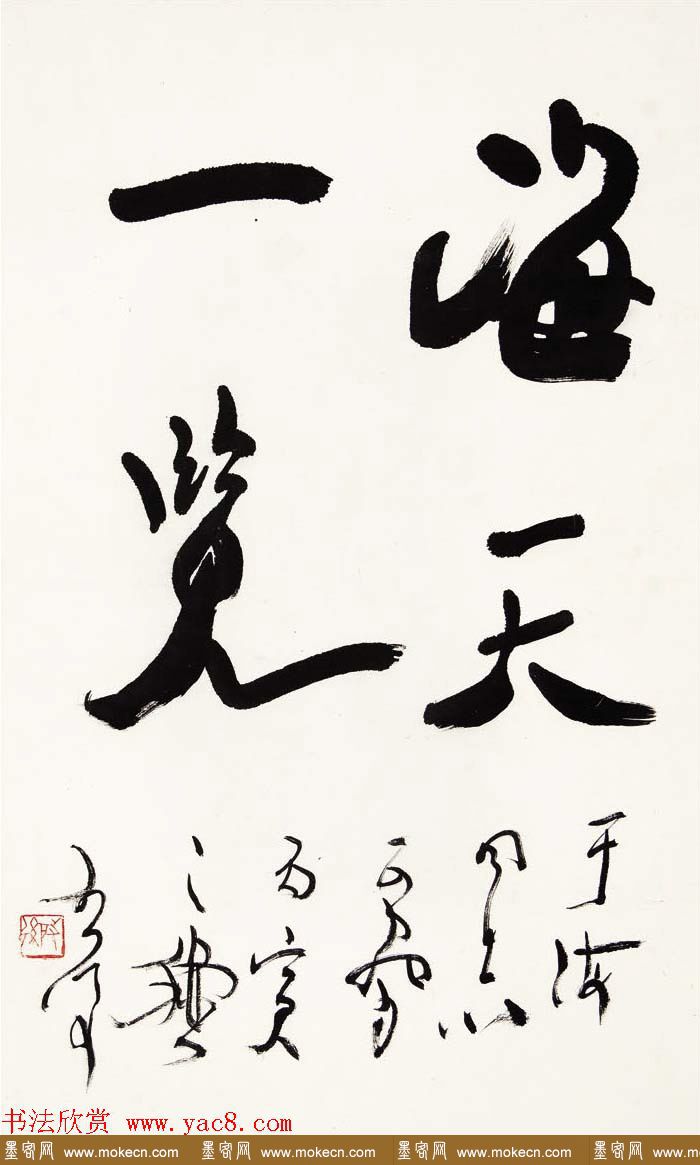 海天
一览
于海
同志
丙寅
之
书法欣赏 www.yac8.com
墨客网 www.mokecn.com 墨客网 www.mokecn.com 墨客网 www.mokecn.com 墨客网 www.m